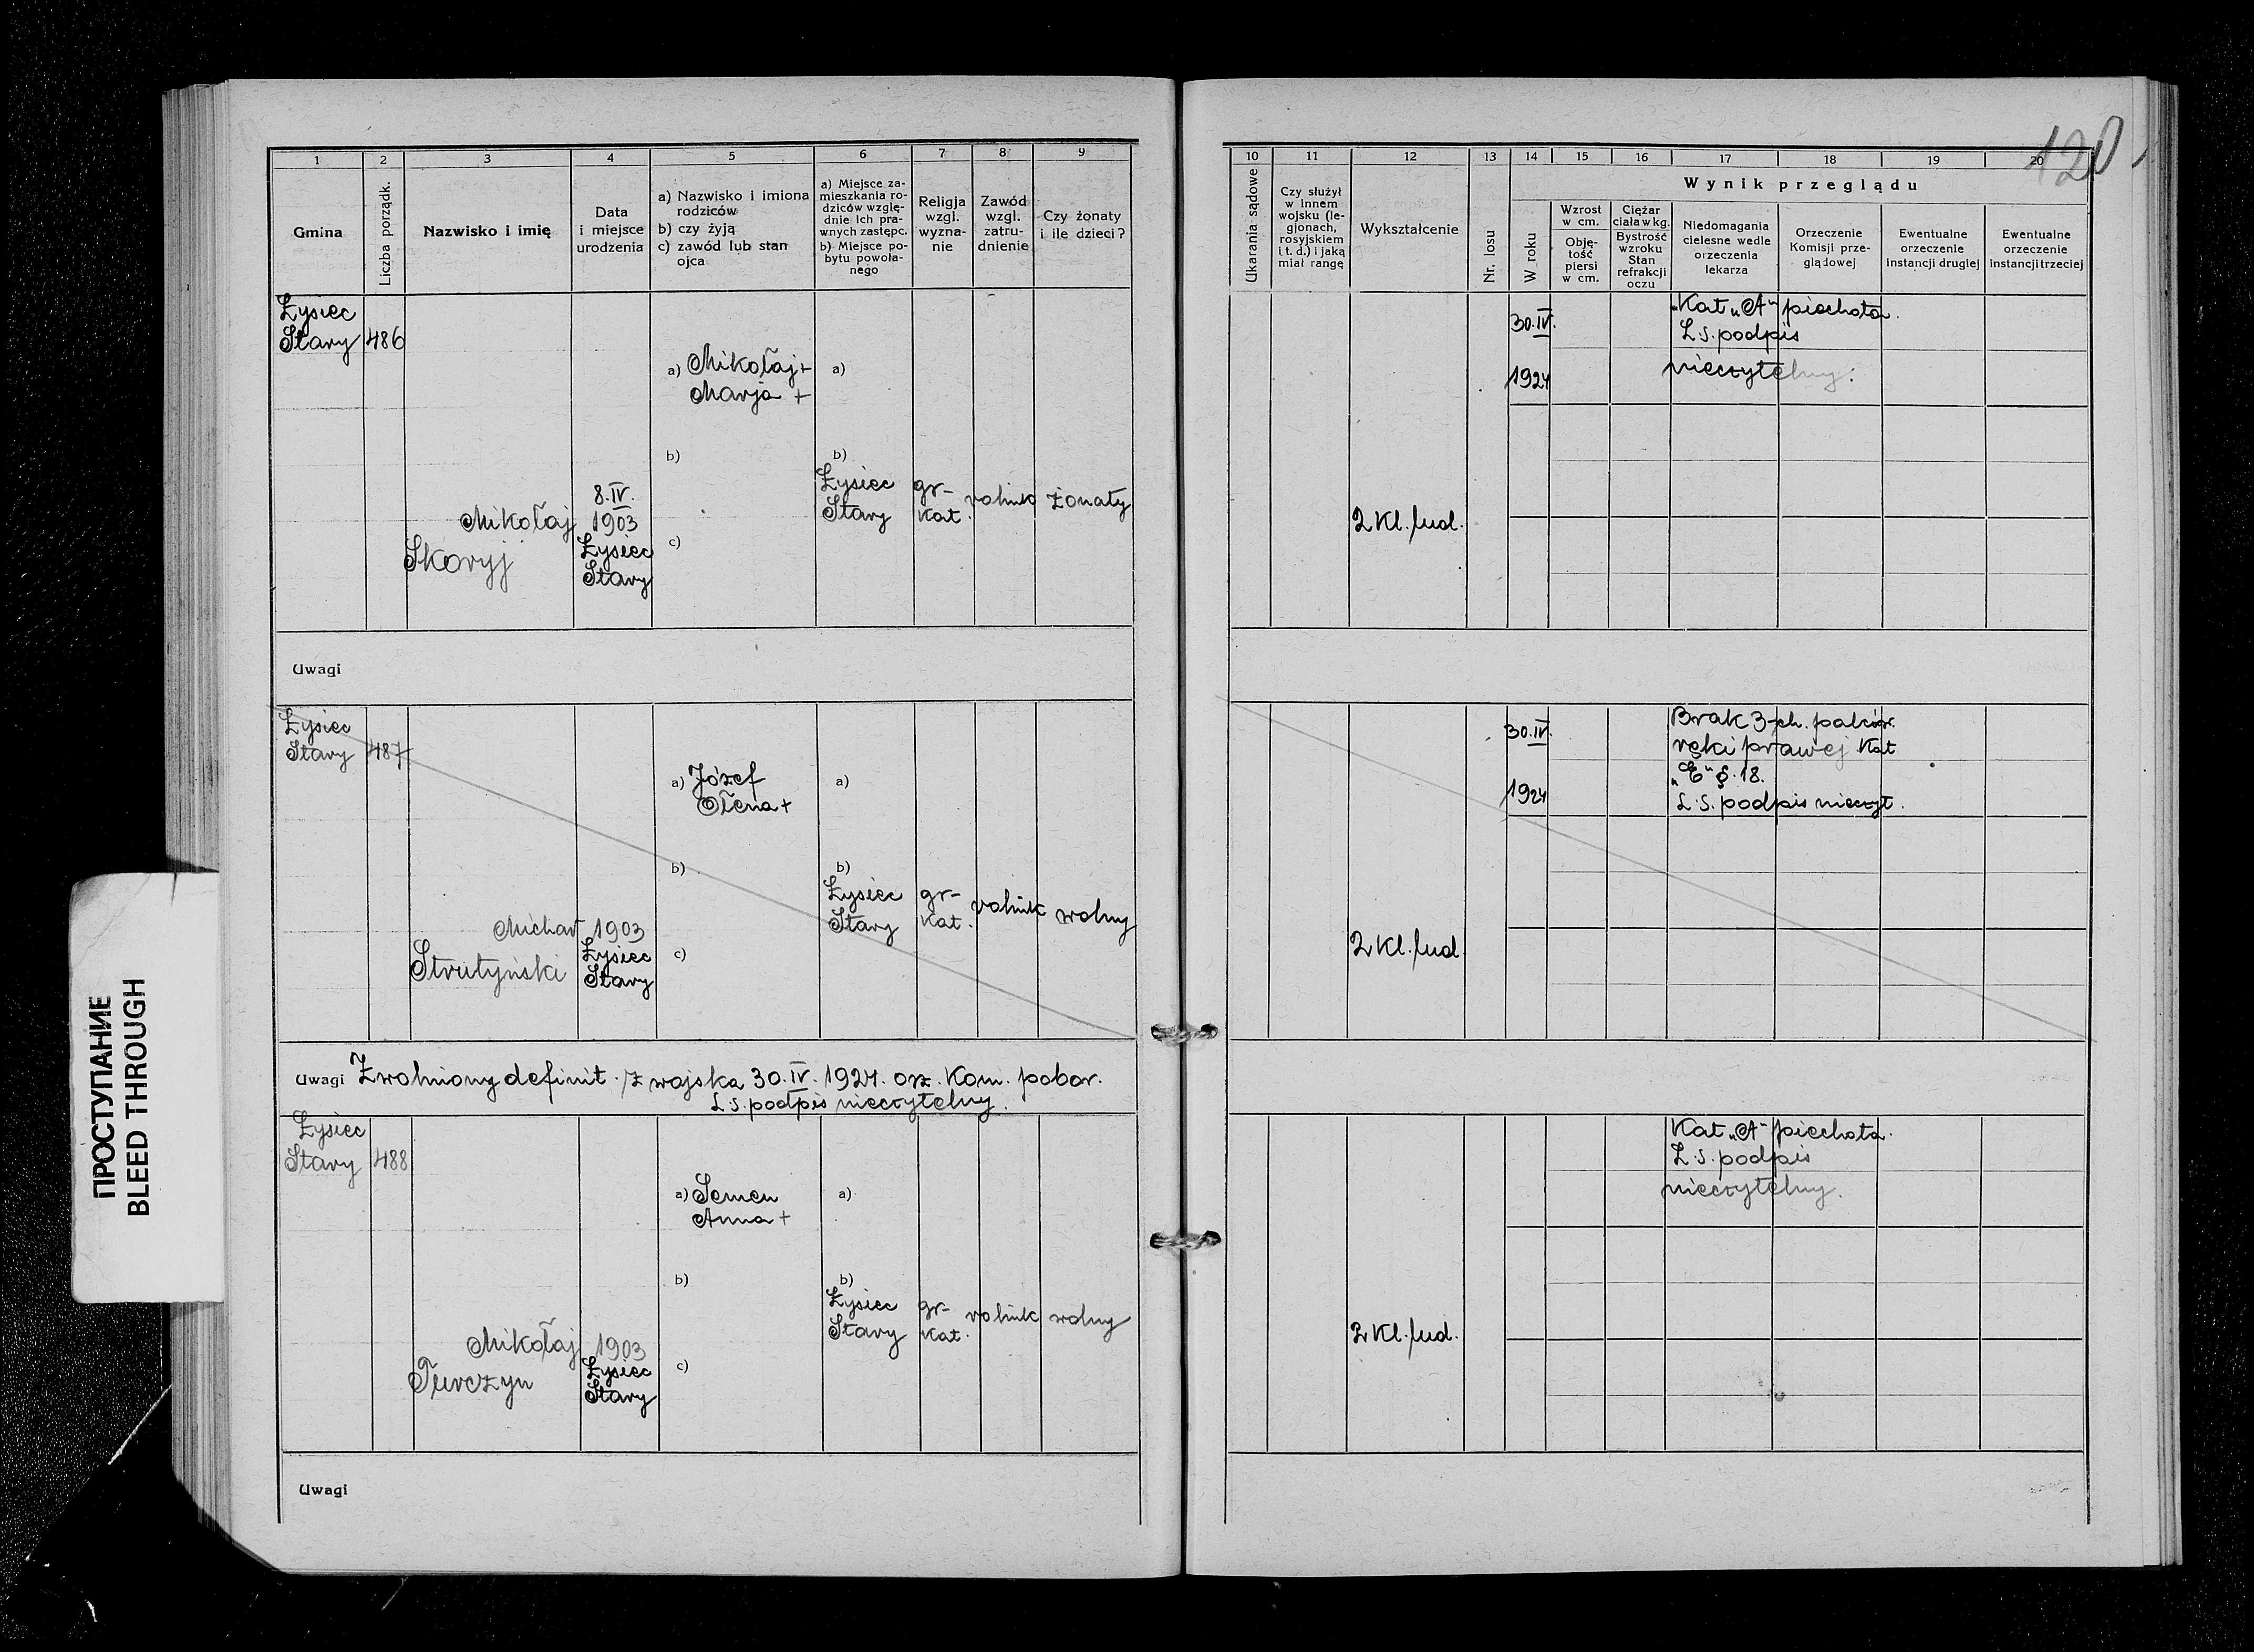 120
1 2 3 4 5 6 7 8 9
Gmina
Liczba porządk.
Nazwisko i imię
Data
i miejsce
urodzenia
a) Nazwisko i imiona
rodziców
b) czy żyją
c) zawód lub stan
ojca
a) Miejsce za-
mieszkania ro-
dziców wzglę-
dnie ich pra-
wnych zastępc.
b) Miejsce po-
bytu powoła-
nego
Religja
wzgl.
wyzna-
nie
Zawód
wzgl.
zatru-
dnienie
Czy żonaty
i ile dzieci?
10 11 12 13 14 15 16 17 18 19 20
Ukarania sądowe
Czy służył
w innem
wojsku (le-
gjonach,
rosyjskiem
i t. d.) i jaką
miał rangę
Wykształcenie
Nr. losu
W roku
Wynik przeglądu
Wzrost
w cm.
Obję-
tość
piersi
w cm.
Ciężar
ciała w kg.
Bystrość
wzroku
Stan
refrakcji
oczu
Niedomagania
cielesne wedle
orzeczenia
lekarza
Orzeczenie
Komisji prze-
glądowej
Ewentualne
orzeczenie
instancji drugiej
Ewentualne
orzeczenie
instancji trzeciej
Łysiec
Stary 486
Mikołaj
Skoryj
8.IV.
1903
Łysiec
Stary
a) Mikołaj +
Marja +
b)
c)
a)
b)
Łysiec
Stary
gr-
kat.
rolnik
żonaty
2 kl. lud.
30.IV.
1924
Kat „A" piechota.
L.S. podpis
nieczytelny.
Uwagi
Łysiec
Stary 487
Michał
Strutyński
1903
Łysiec
Stary
a) Józef
Ołena +
b)
c)
a)
b)
Łysiec
Stary
gr-
kat.
rolnik
wolny
2 kl. lud.
30.IV.
1924
Brak 3-ch. palców.
ręki prawej Kat
„E" §. 18.
L.S. podpis nieczyt.
Uwagi Zwolniony definit. z wojska 30.IV. 1924. orz. Kom. pobor.
L.S. podpis nieczytelny.
Łysiec
Stary 488
Mikołaj
Turczyn
1903
Łysiec
Stary
a) Semen
Anna +
b)
c)
a)
b)
Łysiec
Stary
gr-
kat.
rolnik
wolny
2 kl. lud.
Kat „A" piechota.
L.S. podpis
nieczytelny.
Uwagi
ПРОСТУПАНИЕ
BLEED THROUGH